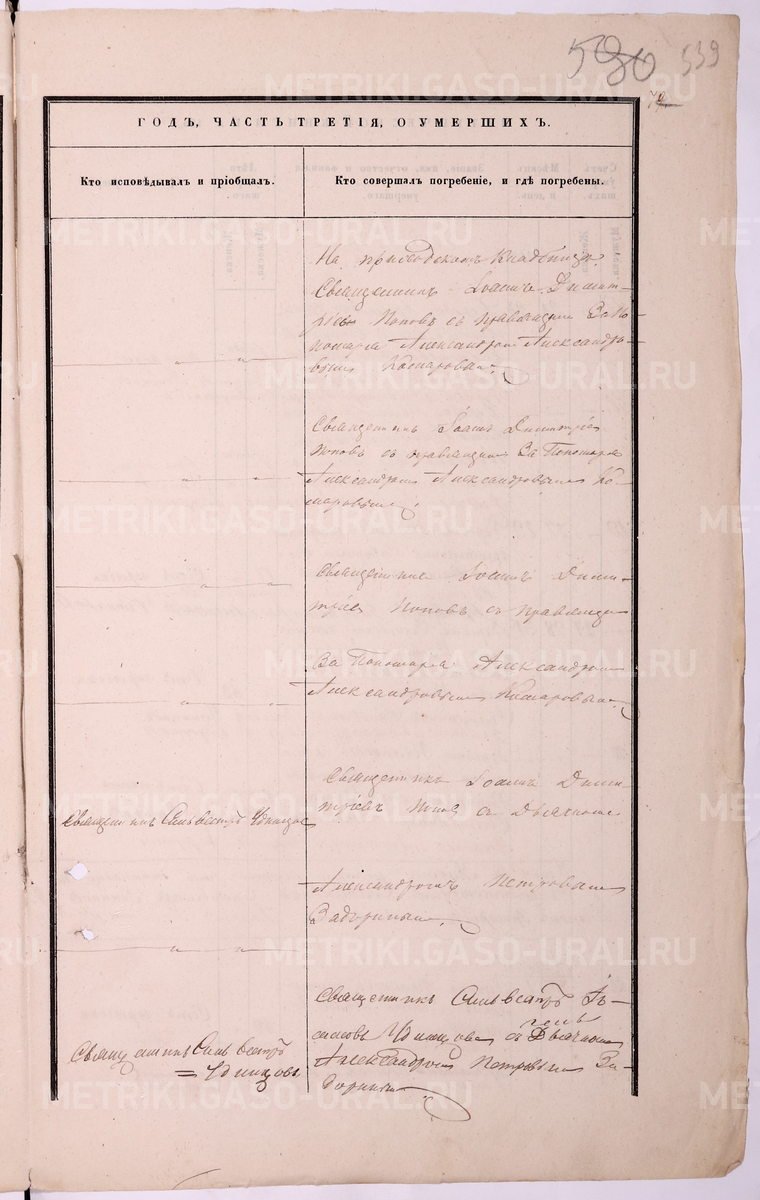 580 539
ГОДЪ, ЧАСТЬ ТРЕТІЯ, О УМЕРШИХЪ.
Кто исповѣдывалъ и пріобщалъ.
Кто совершалъ погребеніе, и гдѣ погребены.
На приходскомъ кладбищѣ.
Священникъ Іоаннъ Димит-
ріевъ Поповъ съ правящимъ За По-
номаря Александромъ Александро-
вымъ Комаровымъ.
Священникъ Іоаннъ Димитріевъ
Поповъ съ правящимъ За Пономаря
Александромъ Александровымъ Ко-
маровымъ
Священникъ Іоаннъ Дими-
тріевъ Поповъ съ правящимъ
За Пономаря Александромъ
Александровымъ Комаровымъ
Священникъ Сильвестръ Удинцовъ
Священникъ Іоаннъ Дими-
тріевъ Поповъ съ Дьячкомъ
Александромъ Петровымъ
Задоринымъ
Священникъ Сильвестръ
= Удинцовъ
Священникъ Сильвестръ
Удинцовъ съ Дьячкомъ
Александромъ Петровымъ За-
доринымъ
METRIKI.GASO-URAL.RU